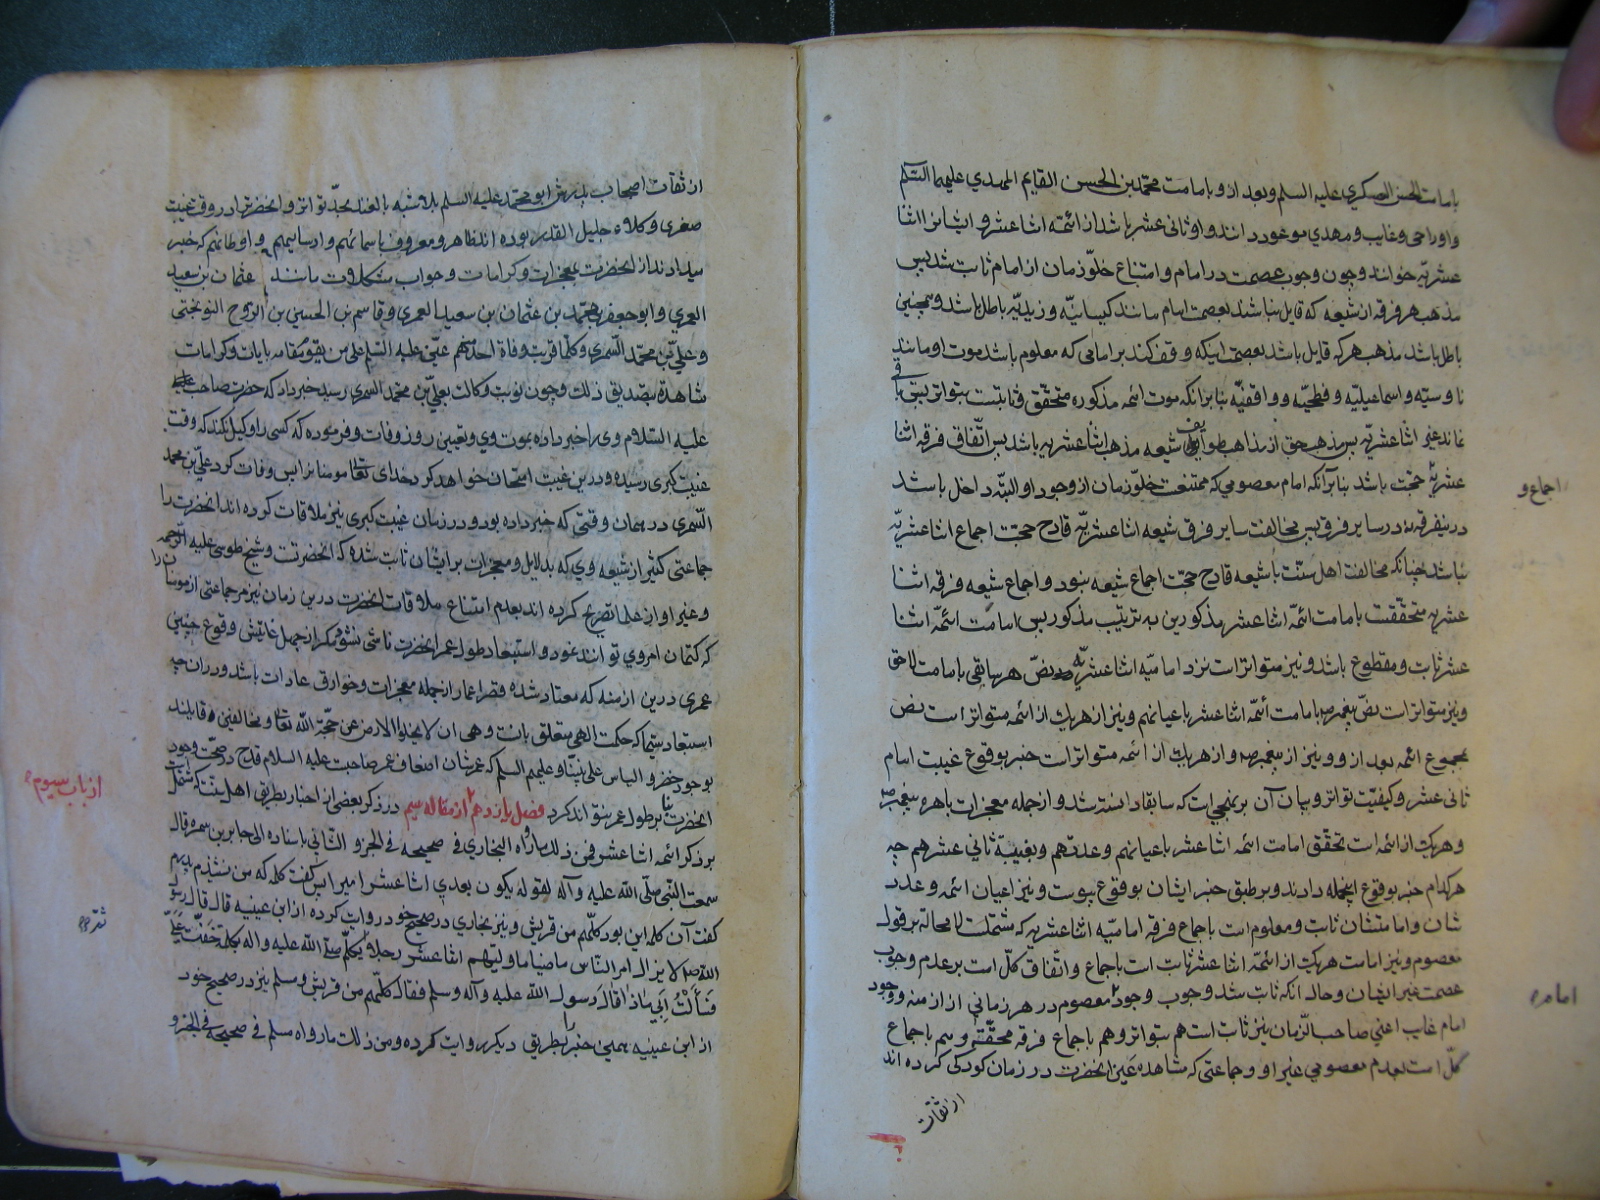 بامامت الحسن العسکری علیه السلم وبعد ازو بامامت محمد بن الحسن القایم المهدی علیهما السلم
واورا حی وغایب ومهدی موعود دانند واو ثانی عشر باشد از ائمه اثنا عشر و ایشانرا اثنا
عشریه خوانند وچون وجوب عصمت در امام و امتناع خلو زمان از امام ثابت شد پس
مذهب هر فرقه از شیعه که قایل نباشند بعصمت امام مانند کیسانیه و زیدیه باطل باشد وهمچنین
باطل باشد مذهب هر که قایل باشد بعصمت لیکه وقف کند بر امامی که معلوم باشد موت او مانند
ناوسیه و اسماعیلیه و فطحیه و واقفیه بنا برانکه موت ائمه مذکوره متحقق وثابتست بتواتر پس باقی
نماند غیر اثنا عشریه پس مذهب حق از مذاهب طوایف شیعه مذهب اثنا عشریه باشد پس اتفاق فرقه اثنا
عشریه حجت باشد بنا برآنکه امام معصومی که ممتنعست خلو زمان از وجود او البته داخل باشد
اجماع و
درینفرقه نه در سایر فرق پس مخالفت سایر فرق شیعه اثنا عشریه قادح حجت اجماع اثنا عشریه
نباشد چنانکه مخالفت اهل سنت با شیعه قادح حجت اجماع شیعه نبود و اجماع شیعه فرقه اثنا
عشریه متحققست بامامت ائمه اثنا عشر مذکورین به ترتیب مذکور پس امامت ائمه اثنا
عشر ثابت و مقطوع باشد و نیز متواتر است نزد امامیه اثنا عشریه نص هر سابقی بامامت لاحق
ونیز متواتر است نص پیغمبر بامامت ائمه اثنا عشر باعیانهم ونیز از هریک از ائمه متواتر است نص
بمجموع ائمه بعد ازو ونیز از پیغمبر و از هریک از ائمه متواتر است خبر بوقوع غیبت امام
ثانی عشر و کیفیت تواتر و بیان آن بر نهجی است که سابقا دانسته شد و از جمله معجزات باهره پیغمبر
و هریک از ائمه است تحقق امامت ائمه اثنا عشر باعیانهم وعددهم وبغیبة ثانی عشرهم چه
هر کدام خبر بوقوع اینجمله دادند وبر طبق خبر ایشان بوقوع پیوست ونیز اعیان ائمه وعدد
شان وامامتشان ثابت ومعلوم است باجماع فرقه امامیه اثنا عشریه که مشتملست لا محاله بر قول
معصوم ونیز امامت هریک از ائمه اثنا عشر ثابت است باجماع و اتفاق کل است بر عدم وجوب
عصمت غیر ایشان وحال آنکه ثابت شد وجوب وجود معصوم در هر زمانی از ازمنه و وجود
امامره
امام غایب اعنی صاحب الزمان نیز ثابت است هم بتواتر وهم باجماع فرقه محقه وهم باجماع
کل است بعدم معصومی غیر او و جماعتی که مشاهده عین انحضرت در زمان کودکی کرده اند
از ثقات
از ثقات اصحاب پدرش ابو محمد علیه السلم بلا شبه بالغند بحد تواتر و انحضرترا در وقت غیبت
صغری وکلاء جلیل القدر بوده اند ظاهر و معروف باسمائهم و انسابهم و اوطانهم که خبر
میدادند از انحضرت بمعجزات وکرامات وجواب مشکلات مانند عثمان بن سعید
العمری وابو جعفر محمد بن عثمان بن سعید العمری وقاسم بن الحسین بن الروح النوبختی
وعلی بن محمد السمری وکلما قربت وفاة احدهم عین علیه السلم علی من یقوم مقامه بایات وکرامات
شاهدة بتصدیق ذلک وچون نوبت وکالت بعلی بن محمد السمری رسید خبر داد که حضرت صاحب
علیه السلام ویرا خبر داده بموت وی وتعیین روز وفات وفرموده که کسی را وکیل نکند که وقت
غیبت کبری رسیده ودرین غیبت امتحان خواهد کرد خدای تعالی مومنانرا پس وفات کرد علی بن محمد
السمری در همان وقتی که خبر داده بود ودر زمان غیبت کبری نیز ملاقات کرده اند انحضرت را
جماعتی کثیر از شیعه وی که بدلایل ومعجزات بر ایشان ثابت شده که انحضرتست وشیخ طوسی علیه الرحمه
وغیر او از علما تصریح کرده اند بعدم امتناع ملاقات انحضرت درین زمان نیز مر جماعتی از مومنان را
که کتمان امر وی توانند نمود و استبعاد طول عمر انحضرت ناشی نشود مگر از جهل غایتش وقوع چنین
عمری درین ازمنه که معتاد شده قصر اعمار از جمله معجزات وخوارق عادات باشد ودران چه
استبعاد سیما که حکمت الهی متعلق بانست وهی ان لا یخلوا لارض عن حجة الله تعالی ومخالفین قایلند
بوجود خضر و الیاس علی نبینا وعلیهم السلم که عمرشان اضعاف عمر صاحبست علیه السلام قدح در صحت وجود
از باب سیوم
انحضرت بنا بر طول عمر نتواند کرد فصل یازدهم از مقاله سیم در ذکر بعضی از اخبار بطریق اهل سنت که مشتمل است
بر ذکر ائمه اثنا عشر فمن ذلک ما رواه البخاری فی صحیحه فی الجزو الثانی باسناده الی جابر بن سمره قال
سمعت النبی صلی الله علیه وآله لقوله یکون بعدی اثنا عشر امیرا پس گفت کلمه که من نشنیدم پدرم
گفت آن کلمه این بود کلهم من قریش ونیز بخاری در صحیح خود روایت کرده از ابن عیینه قال قال رسول
الله لا یزال امر الناس ماضیا ما ولیهم اثنا عشر رجلا ثم تکلم صلی الله علیه واله بکلمة خفیت علی
فسألت ابی ماذا قال رسول الله علیه وآله وسلم فقال کلهم من قریش ومسلم نیز در صحیح خود
از ابن عیینه همین خبر را بطریق دیگر روایت کرده ومن ذلک ما رواه مسلم فی صحیحه فی الجزو